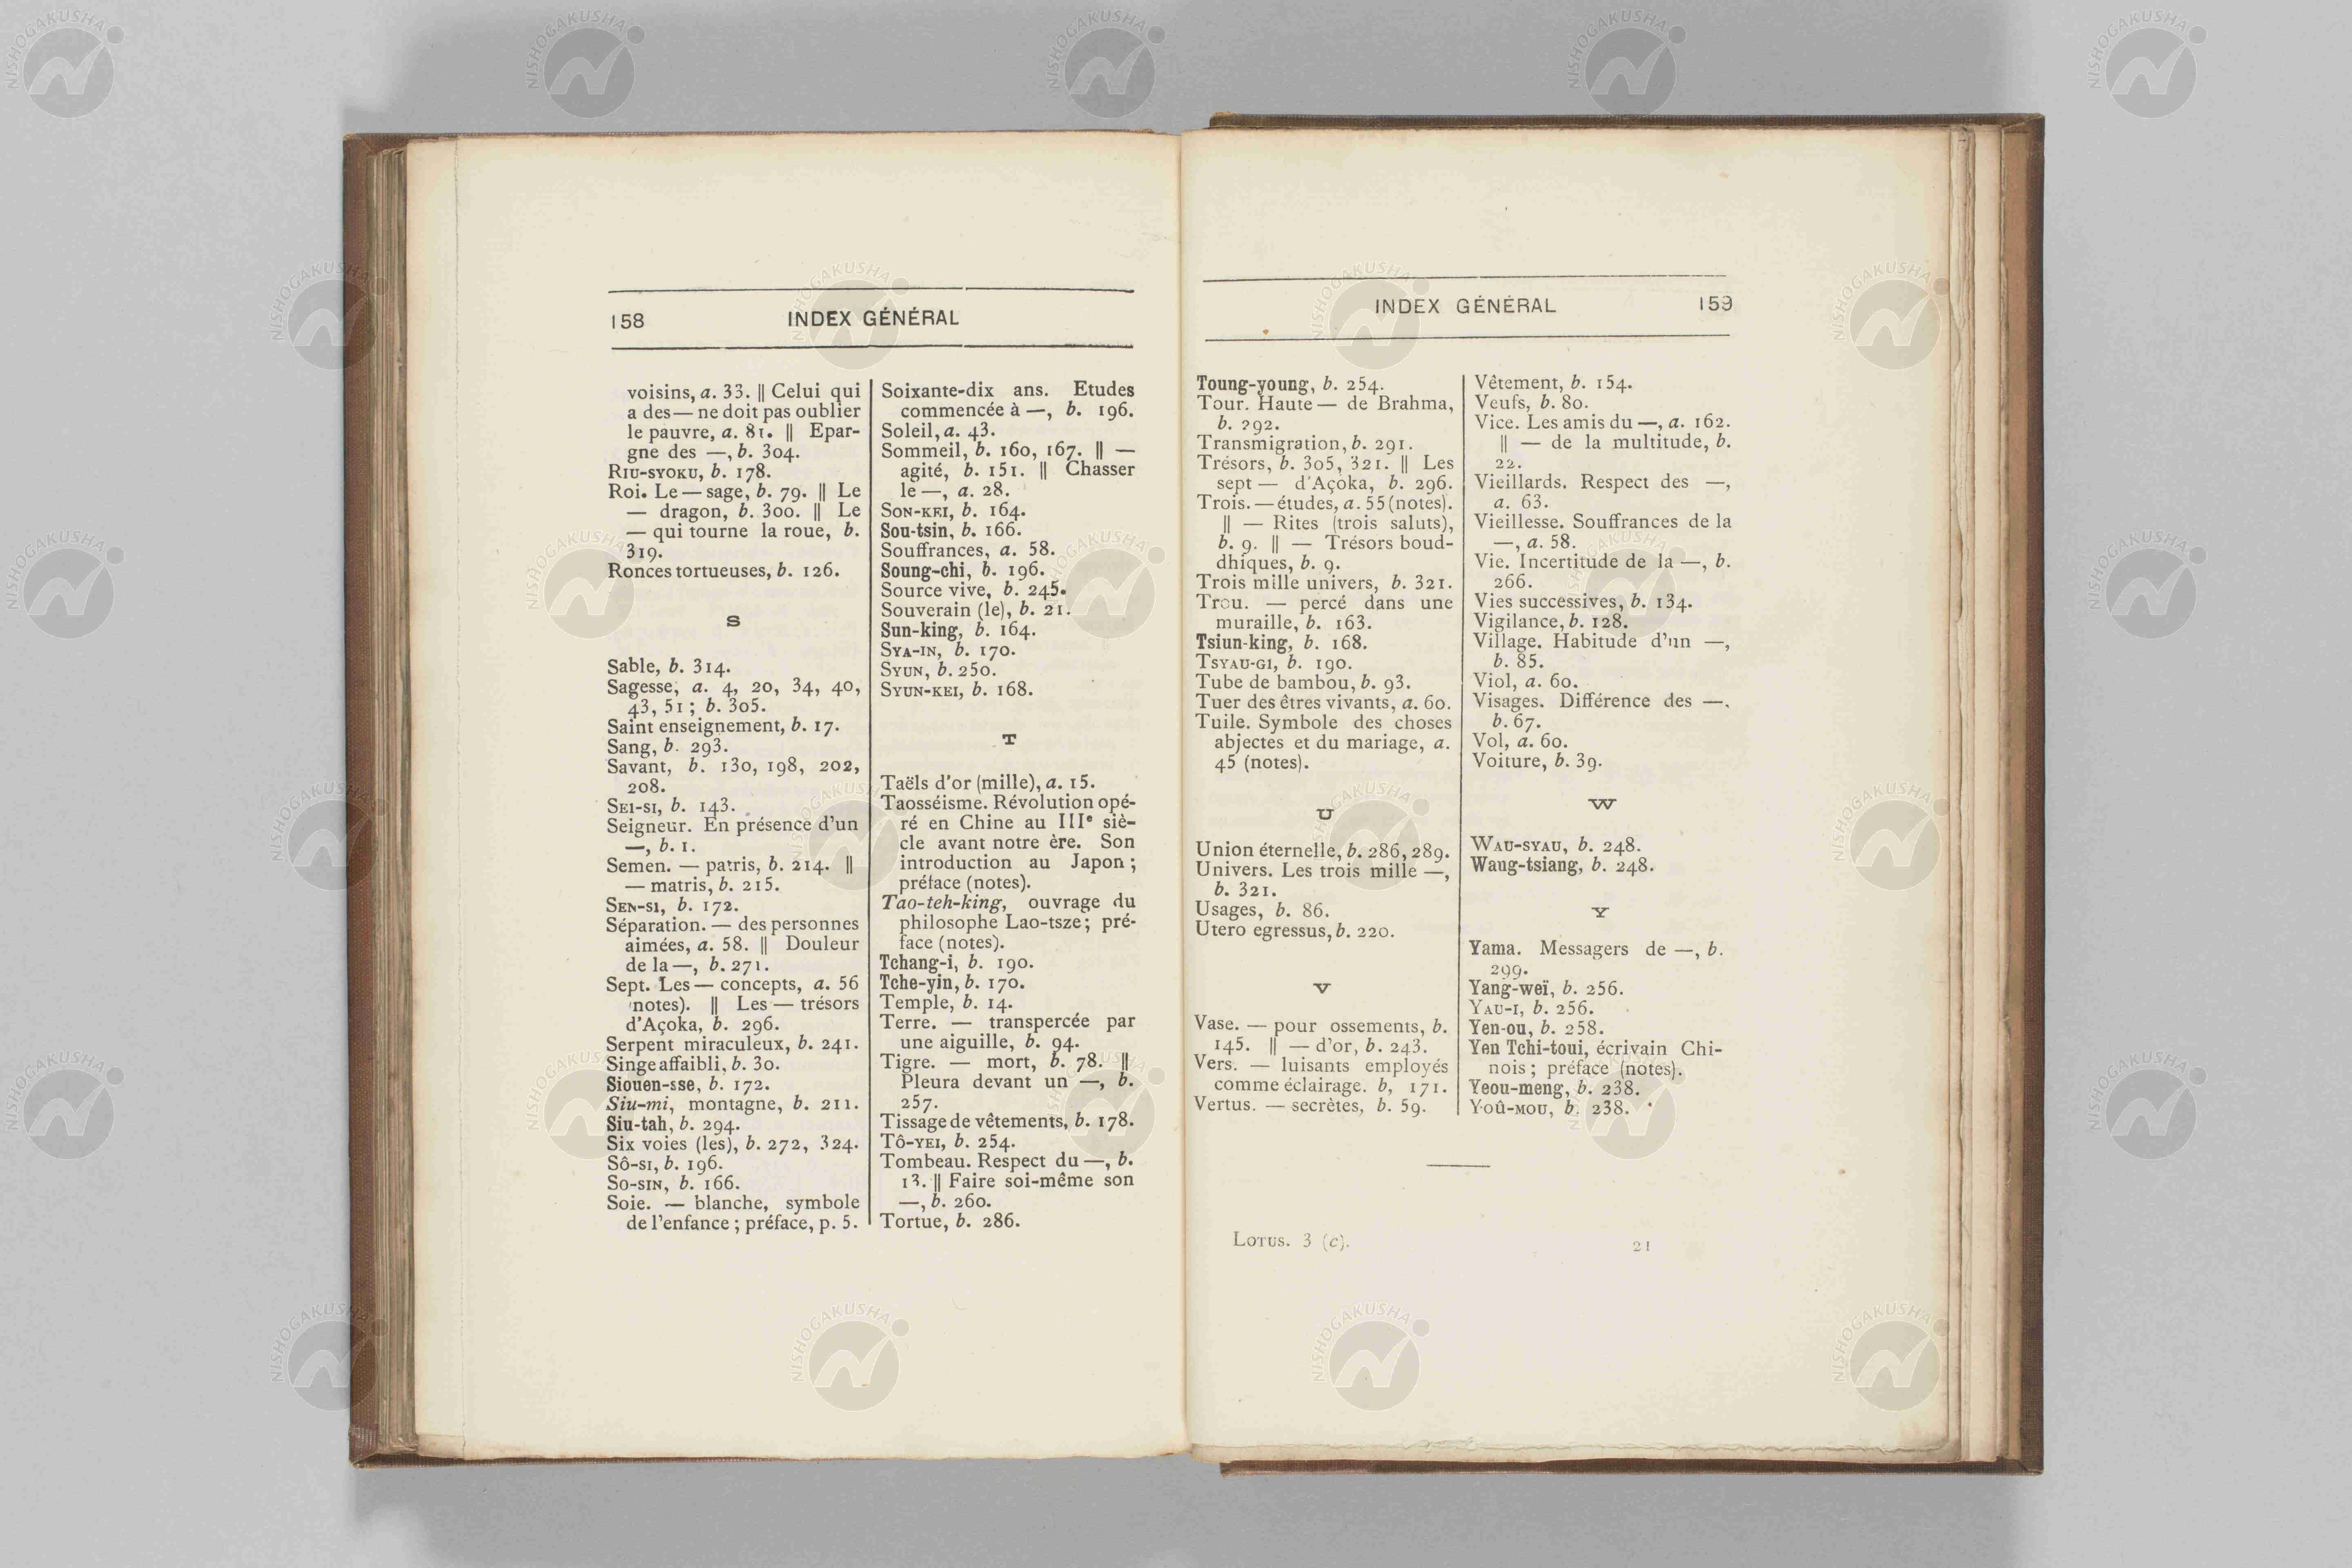 158
INDEX GÉNÉRAL
voisins, a. 33. || Celui qui
a des — ne doit pas oublier
le pauvre, a. 81. || Epar-
gne des —, b. 304.
RIU-SYOKU, b. 178.
Roi. Le — sage, b. 79. || Le
— dragon, b. 300. || Le
— qui tourne la roue, b.
319.
Ronces tortueuses, b. 126.
S
Sable, b. 314.
Sagesse, a. 4, 20, 34, 40,
43, 51; b. 305.
Saint enseignement, b. 17.
Sang, b. 293.
Savant, b. 130, 198, 202,
208.
SEI-SI, b. 143.
Seigneur. En présence d'un
—, b. 1.
Semen. — patris, b. 214. ||
— matris, b. 215.
SEN-SI, b. 172.
Séparation. — des personnes
aimées, a. 58. || Douleur
de la —, b. 271.
Sept. Les — concepts, a. 56
notes). || Les — trésors
d'Açoka, b. 296.
Serpent miraculeux, b. 241.
Singe affaibli, b. 30.
Siouen-sse, b. 172.
Siu-mi, montagne, b. 211.
Siu-tah, b. 294.
Six voies (les), b. 272, 324.
SÔ-SI, b. 196.
SO-SIN, b. 166.
Soie. — blanche, symbole
de l'enfance; préface, p. 5.
Soixante-dix ans. Etudes
commencée à —, b. 196.
Soleil, a. 43.
Sommeil, b. 160, 167. || —
agité, b. 151. || Chasser
le —, a. 28.
SON-KEI, b. 164.
Sou-tsin, b. 166.
Souffrances, a. 58.
Soung-chi, b. 196.
Source vive, b. 245.
Souverain (le), b. 21.
Sun-king, b. 164.
SYA-IN, b. 170.
SYUN, b. 250.
SYUN-KEI, b. 168.
T
Taëls d'or (mille), a. 15.
Taosséisme. Révolution opé-
ré en Chine au IIIe siè-
cle avant notre ère. Son
introduction au Japon;
préface (notes).
Tao-teh-king, ouvrage du
philosophe Lao-tsze; pré-
face (notes).
Tchang-i, b. 190.
Tche-yin, b. 170.
Temple, b. 14.
Terre. — transpercée par
une aiguille, b. 94.
Tigre. — mort, b. 78. ||
Pleura devant un —, b.
257.
Tissage de vêtements, b. 178.
TÔ-YEI, b. 254.
Tombeau. Respect du —, b.
13. || Faire soi-même son
—, b. 260.
Tortue, b. 286.
INDEX GÉNÉRAL
159
Toung-young, b. 254.
Tour. Haute — de Brahma,
b. 292.
Transmigration, b. 291.
Trésors, b. 305, 321. || Les
sept — d'Açoka, b. 296.
Trois. — études, a. 55 (notes).
|| — Rites (trois saluts),
b. 9. || — Trésors boud-
dhiques, b. 9.
Trois mille univers, b. 321.
Trou. — percé dans une
muraille, b. 163.
Tsiun-king, b. 168.
TSYAU-GI, b. 190.
Tube de bambou, b. 93.
Tuer des êtres vivants, a. 60.
Tuile. Symbole des choses
abjectes et du mariage, a.
45 (notes).
U
Union éternelle, b. 286, 289.
Univers. Les trois mille —,
b. 321.
Usages, b. 86.
Utero egressus, b. 220.
V
Vase. — pour ossements, b.
145. || — d'or, b. 243.
Vers. — luisants employés
comme éclairage. b, 171.
Vertus. — secrètes, b. 59.
Vêtement, b. 154.
Veufs, b. 80.
Vice. Les amis du —, a. 162.
|| — de la multitude, b.
22.
Vieillards. Respect des —,
a. 63.
Vieillesse. Souffrances de la
—, a. 58.
Vie. Incertitude de la —, b.
266.
Vies successives, b. 134.
Vigilance, b. 128.
Village. Habitude d'un —,
b. 85.
Viol, a. 60.
Visages. Différence des —.
b. 67.
Vol, a. 60.
Voiture, b. 39.
W
WAU-SYAU, b. 248.
Wang-tsiang, b. 248.
Y
Yama. Messagers de —, b.
299.
Yang-weï, b. 256.
YAU-I, b. 256.
Yen-ou, b. 258.
Yen Tchi-toui, écrivain Chi-
nois; préface (notes).
Yeou-meng, b. 238.
YOÛ-MOU, b. 238.
LOTUS. 3 (c).
21
NISHOGAKUSHA